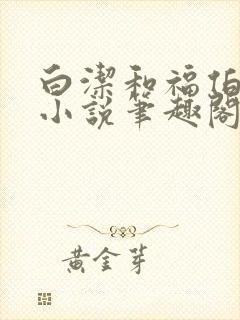 白潔和福伯
小說筆趣閣
黃金芽